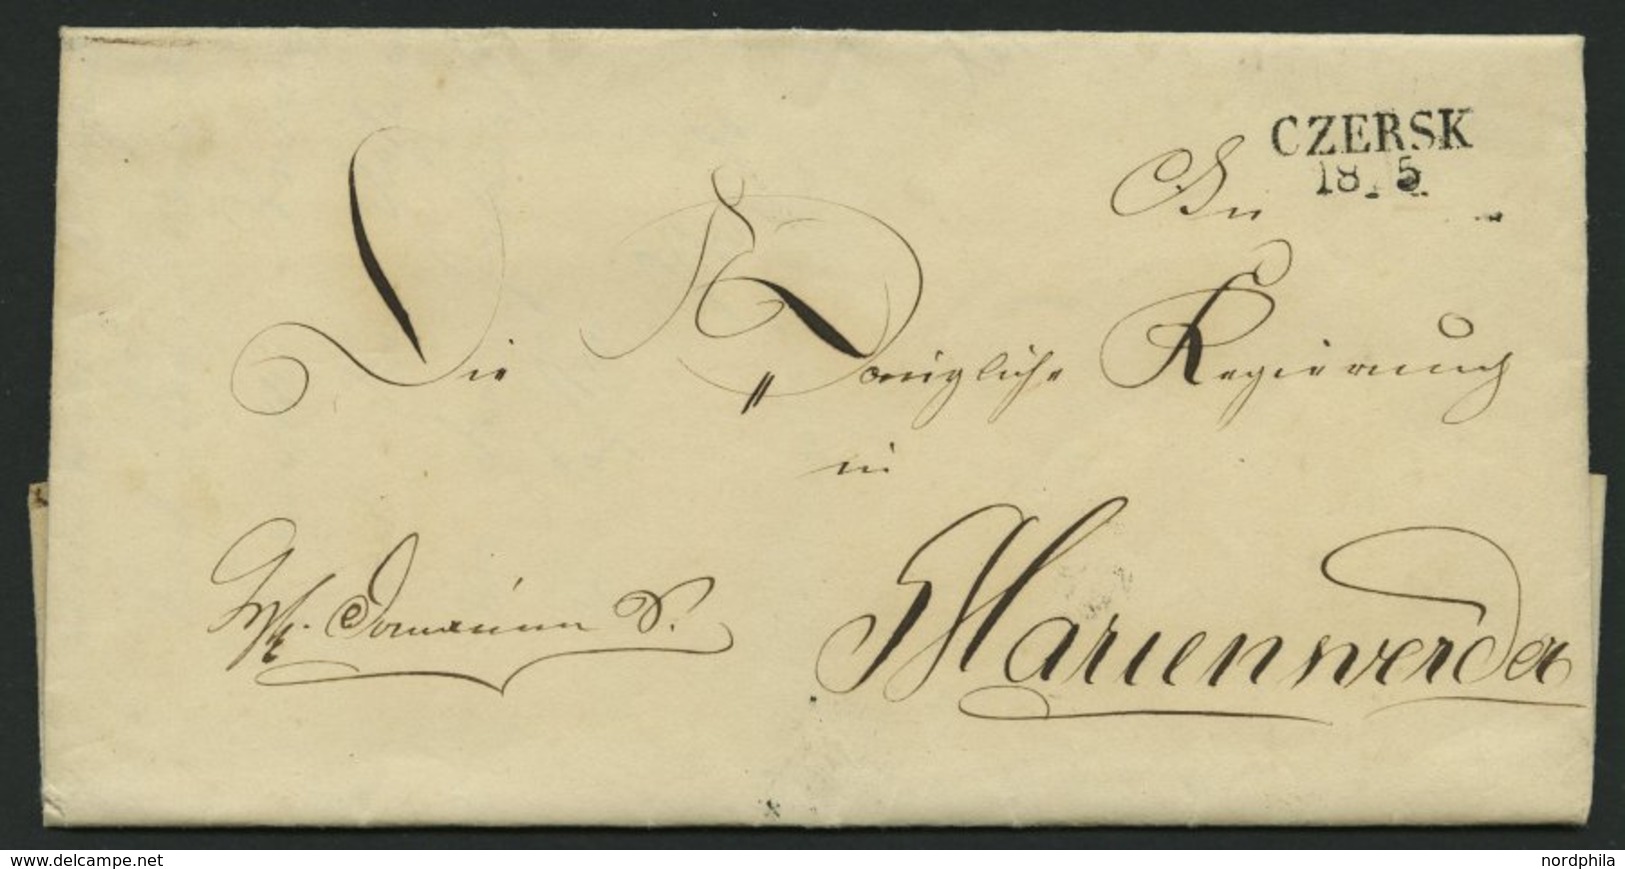 CZERSK
18 5
An
Die Königliche Regierung
in
Marienwerder
Domainen S.
www.delcampe.net
nordphila